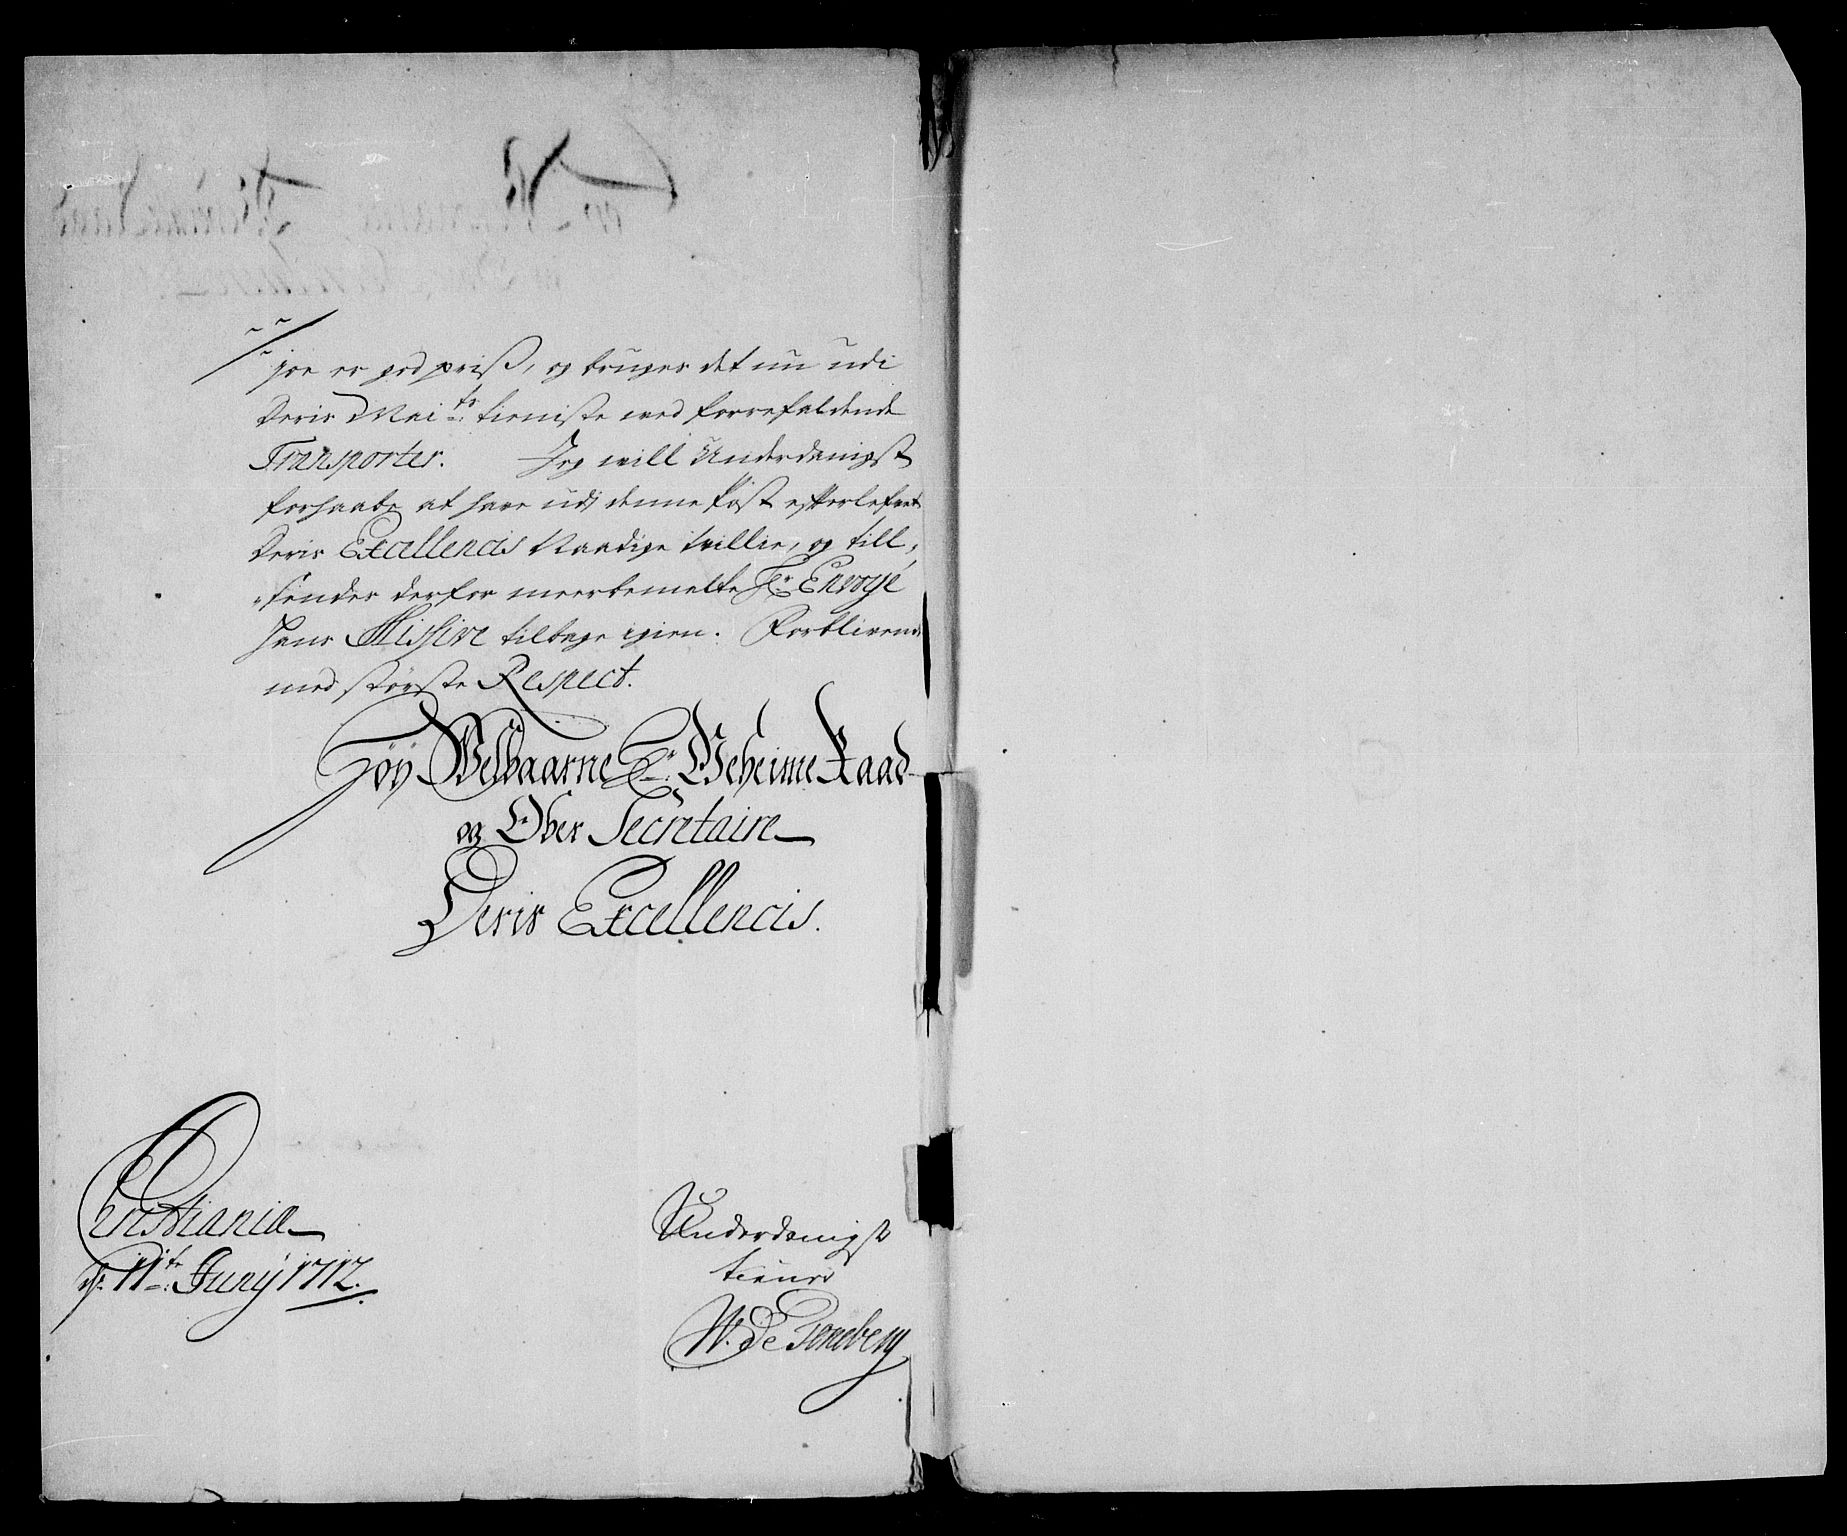 joe er god priß, og bruges det nu udi
Deris Mai:ts tieniste ved forrefaldende
Transporter. Jeg will Underdanigst
forhaabe at have udi denne Post efterlefvet
Deris Excellencis Naadige Willie, og till,
sender derfor meerbemelte Hr Envoyé
hans Missive tilbage igien. Forblivend
med største Respect.
Høy Welbaarne Hr. Geheime Raad
og Ober Secretaire
Deris Excellencis.
Christiania
d. 11te Juny 1712.
Underdanigst
tiener
W. de Tonsberg